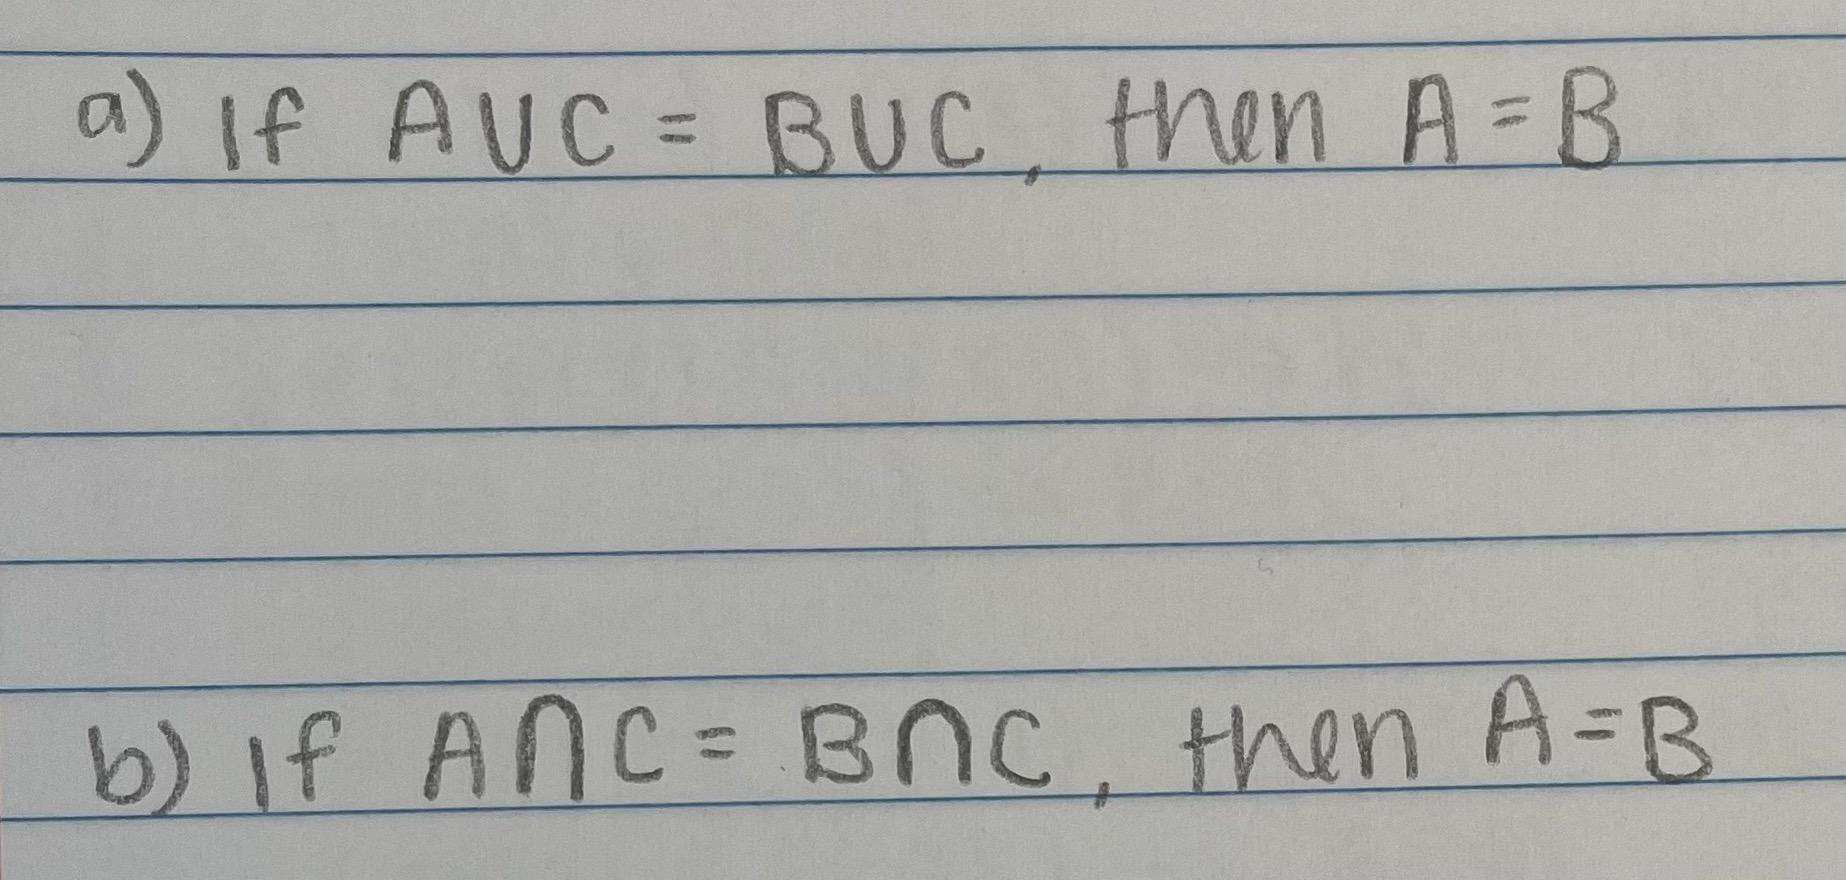 a) If A∪C = B∪C, then A = B
b) If A∩C = B∩C, then A = B